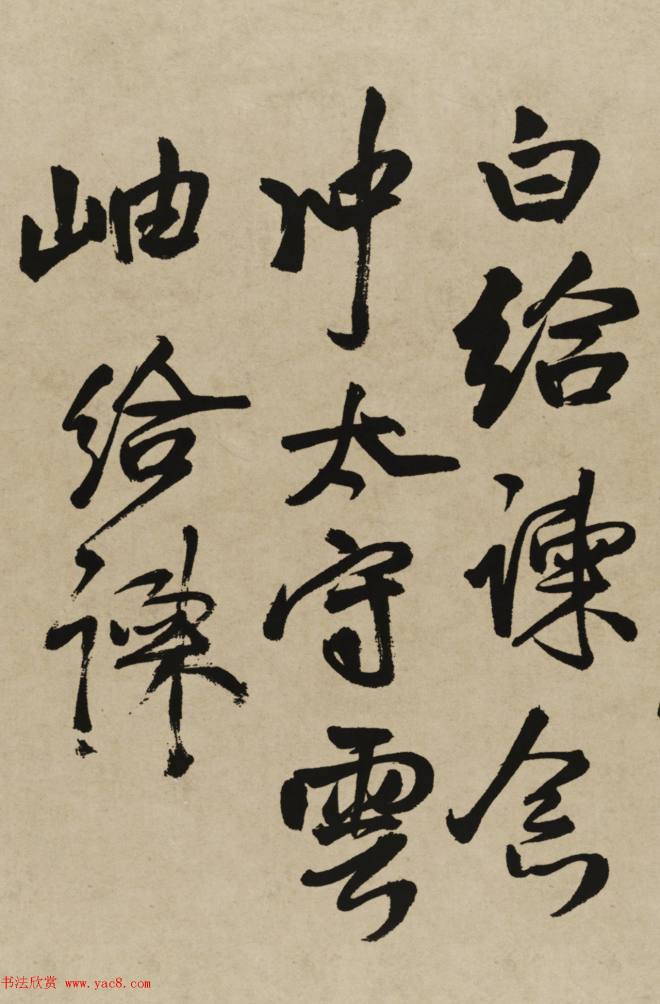 白给谏念
冲太守雲
岫给谏
书法欣赏 www.yac8.com